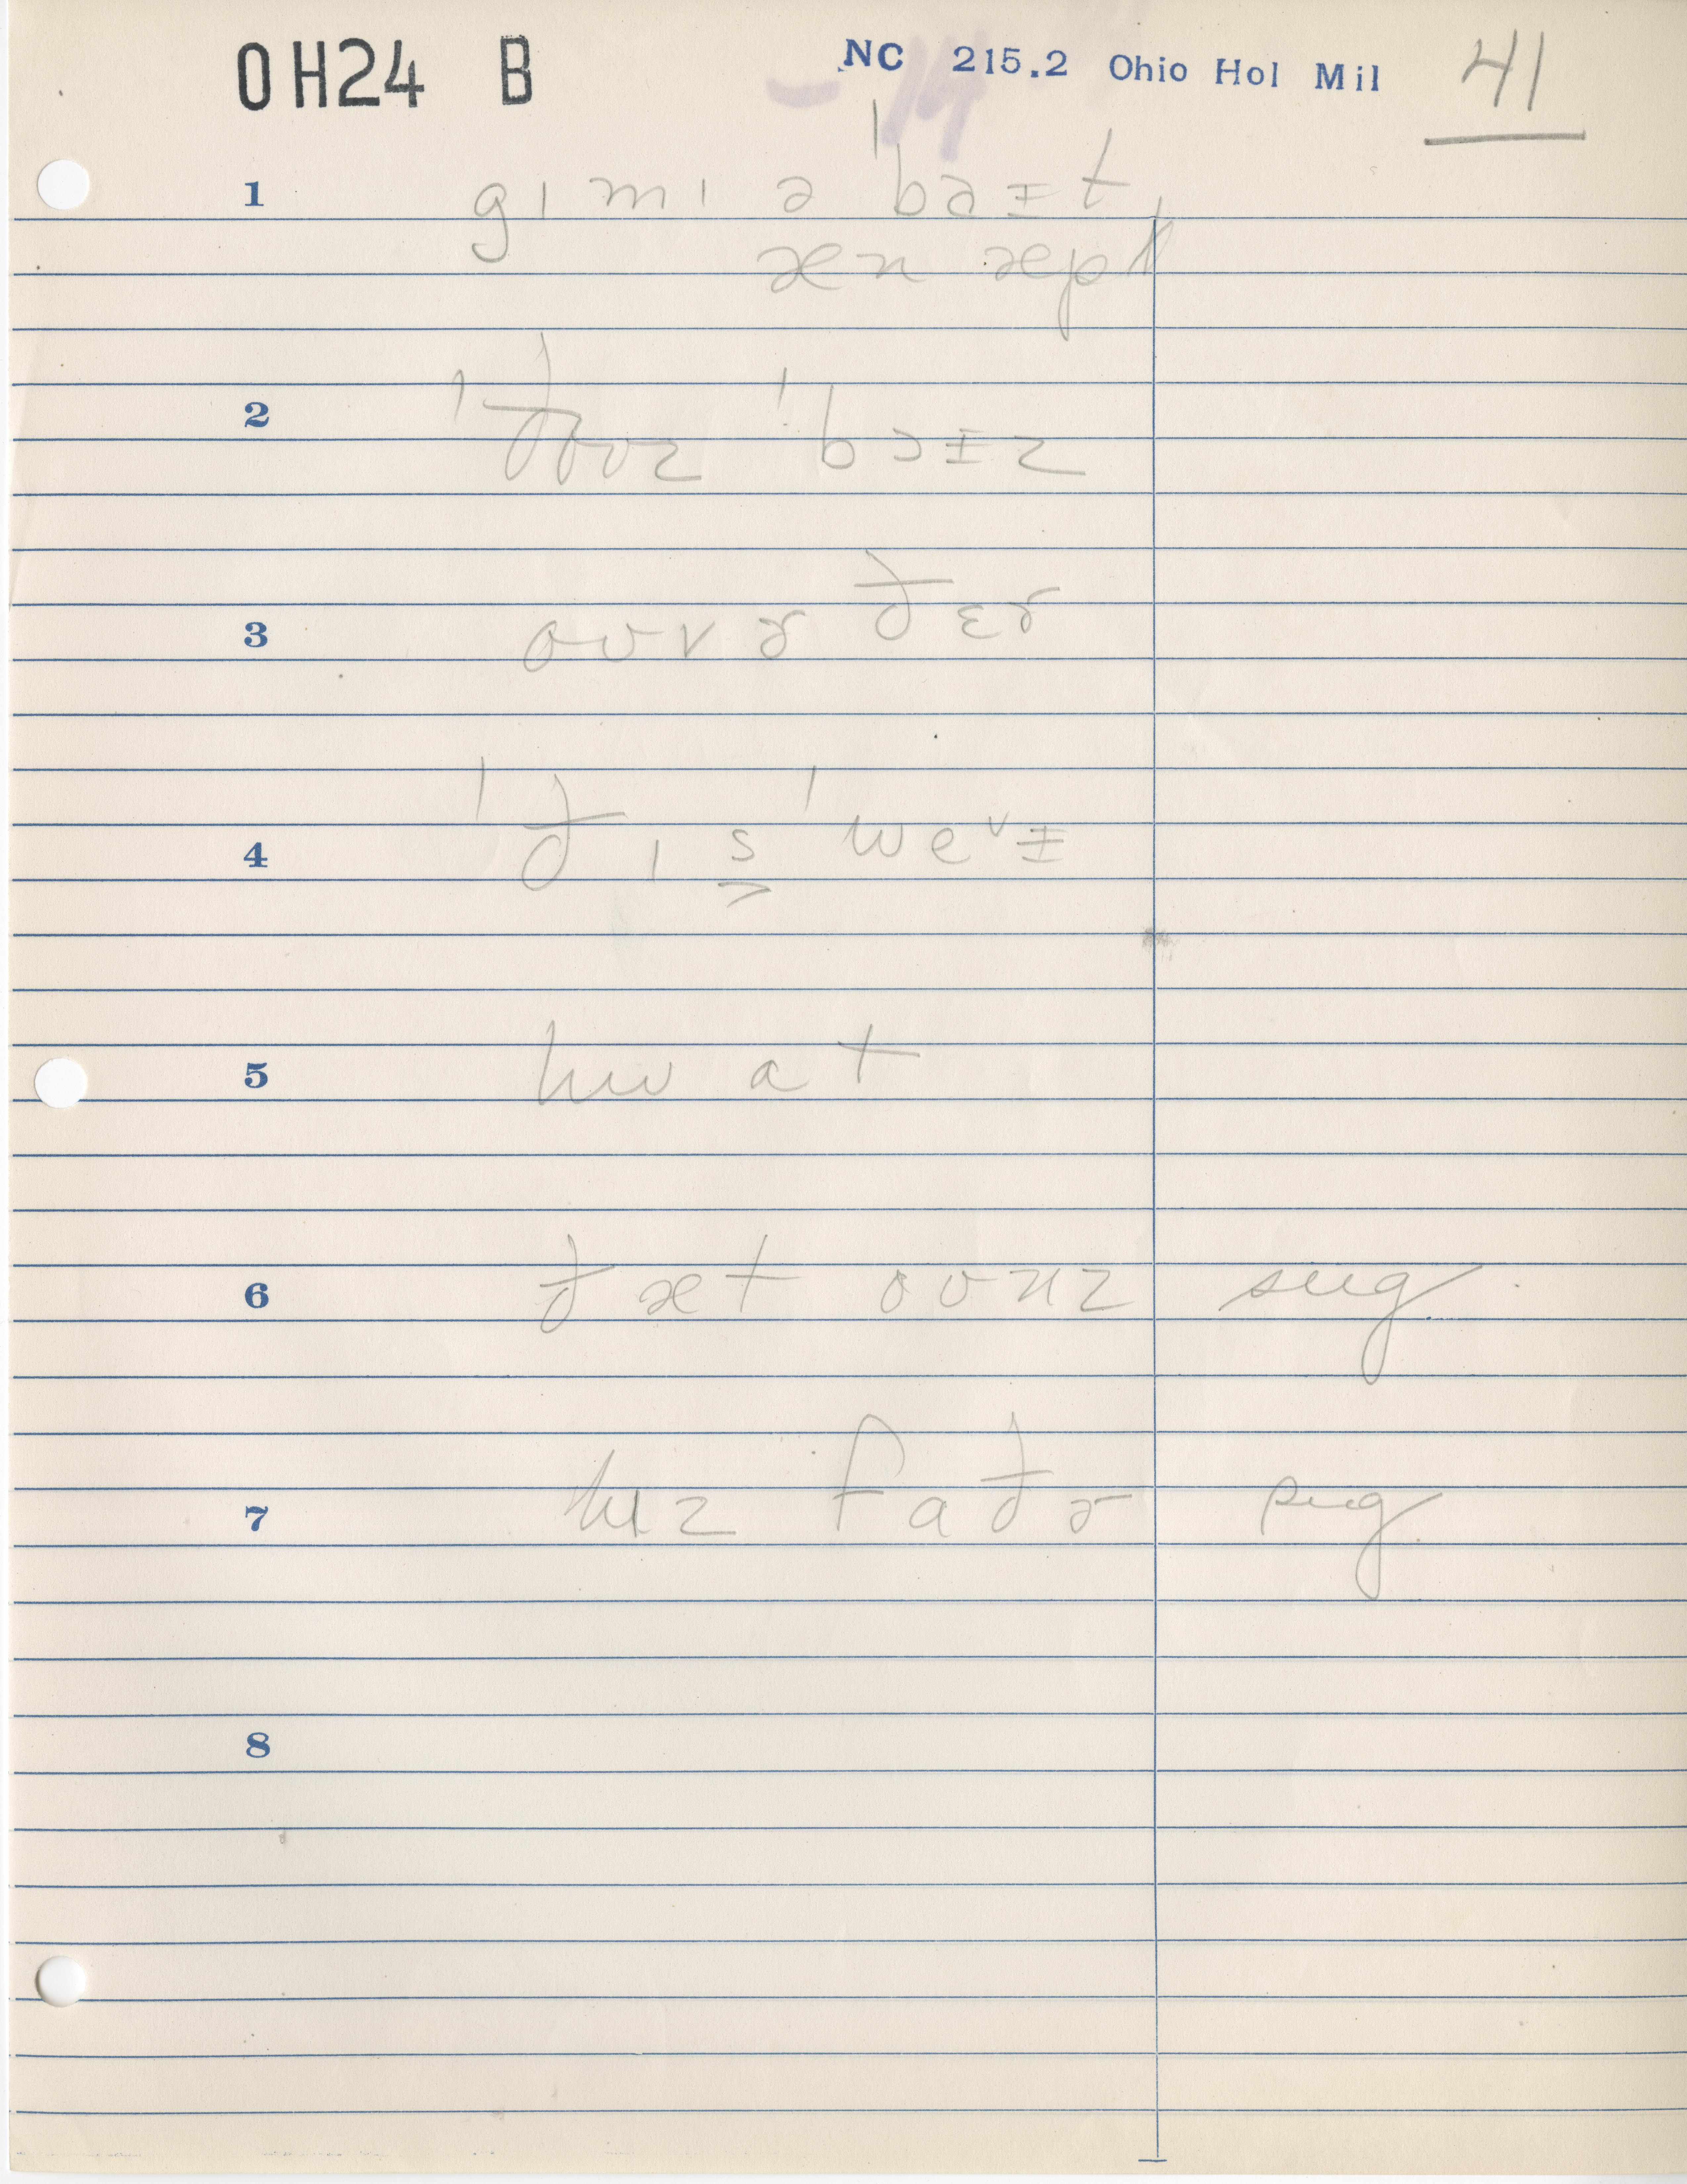 OH24 B NC 215.2 Ohio Hol Mil 41
-14
1 gɪmɪ ə ˈbaɪt,
æn æpl̩
2 ˈðouz ˈbɔɪz
3 ouvɚ ðɛɚ
4 ˈðɪs̬ ˈweᵛɪ
5 hwat
6 ðæt ounz sug.
7 hɪz faðɚ sug.
8